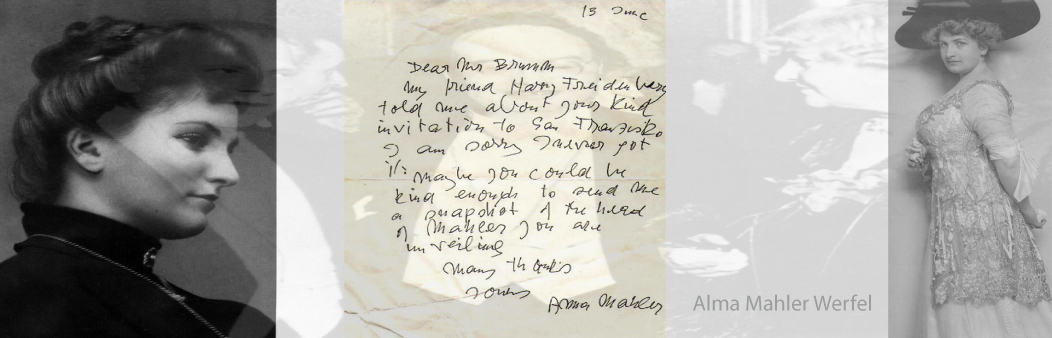 15 June
Dear Mr Brumm
my friend Harry Freidenberg
told me about your kind
invitation to San Franzisko
I am sorry I never got
it: maybe you could be
kind enough to send me
a snapshot of the head
of Mahler you are
unveiling
many thanks
yours
Alma Mahler
Alma Mahler Werfel